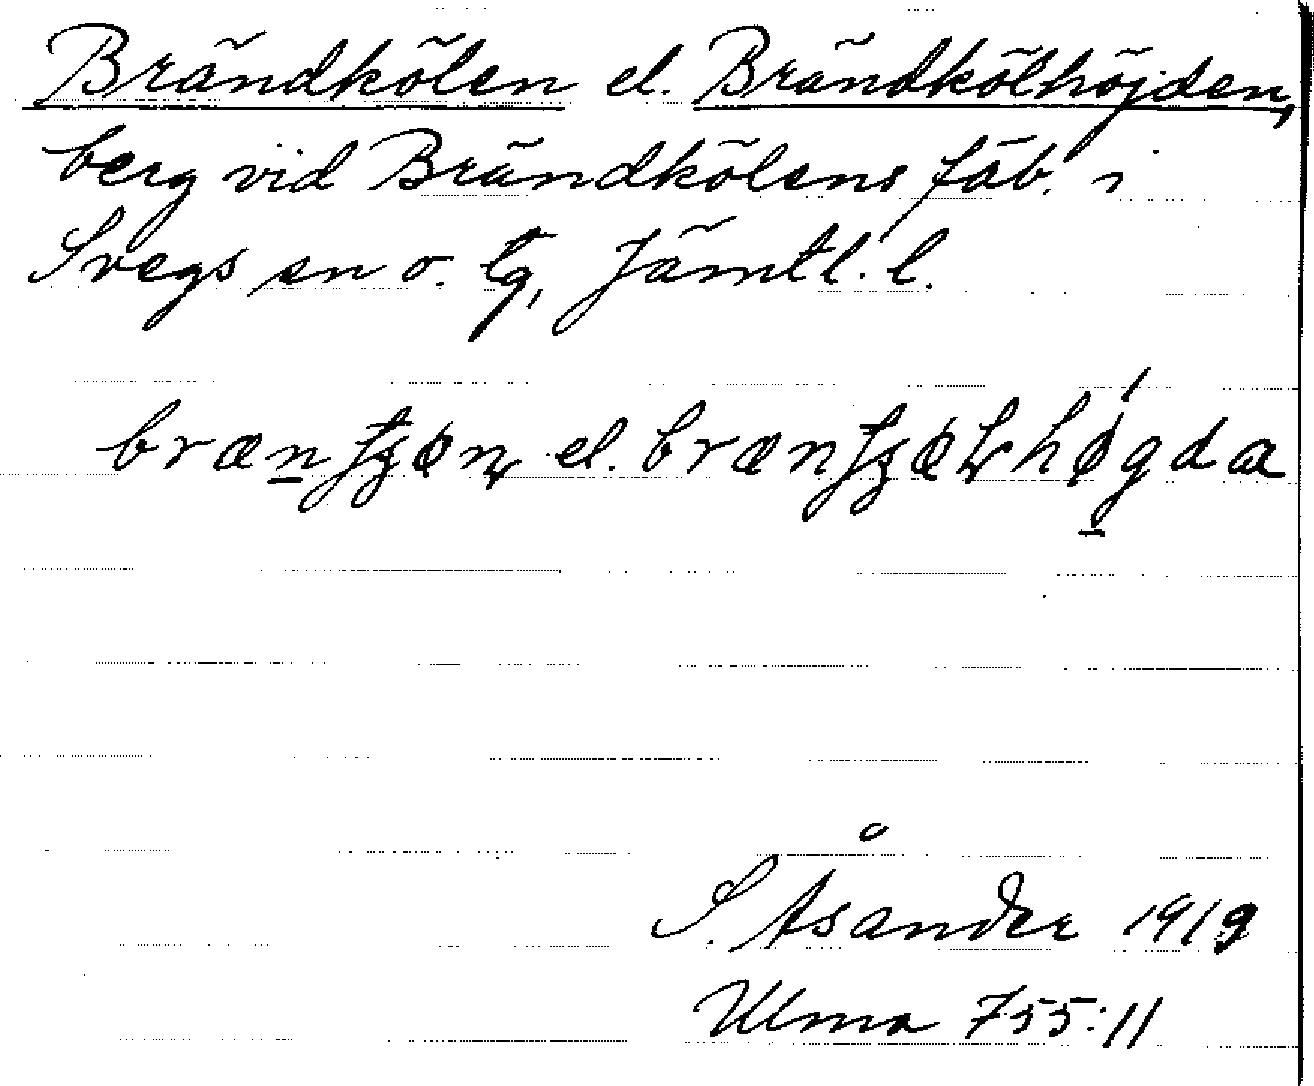 Brändkölen el. Brändkölhöjden,
berg vid Brändkölens fäb. i
Svegs sn o. tg, Jämtl. l.
el.
S. Åsander 1919
Ulma 755:11